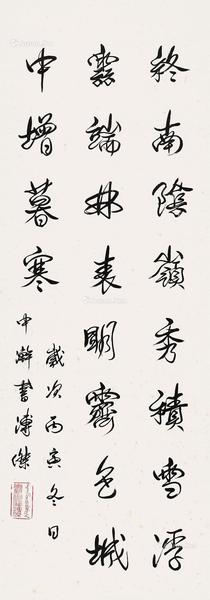 終南陰嶺秀積雪浮
雲端林表明霽色城
中增暮寒
歲次丙寅冬日
中澣書溥傑